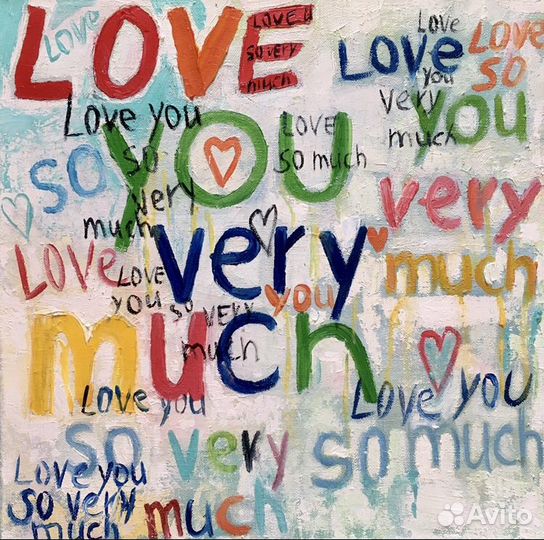 LOVE
Love
LOVE U
so very
much
LOVE
Love
you
very
much
LOVE
so
you
Love you
so
very
much
so
YOU
LOVE
so much
very
much
LOVE
very
you
LOVE
you so very
much
much
Love you
so very
much
Love you
so much
Love you
so very
much
Avito